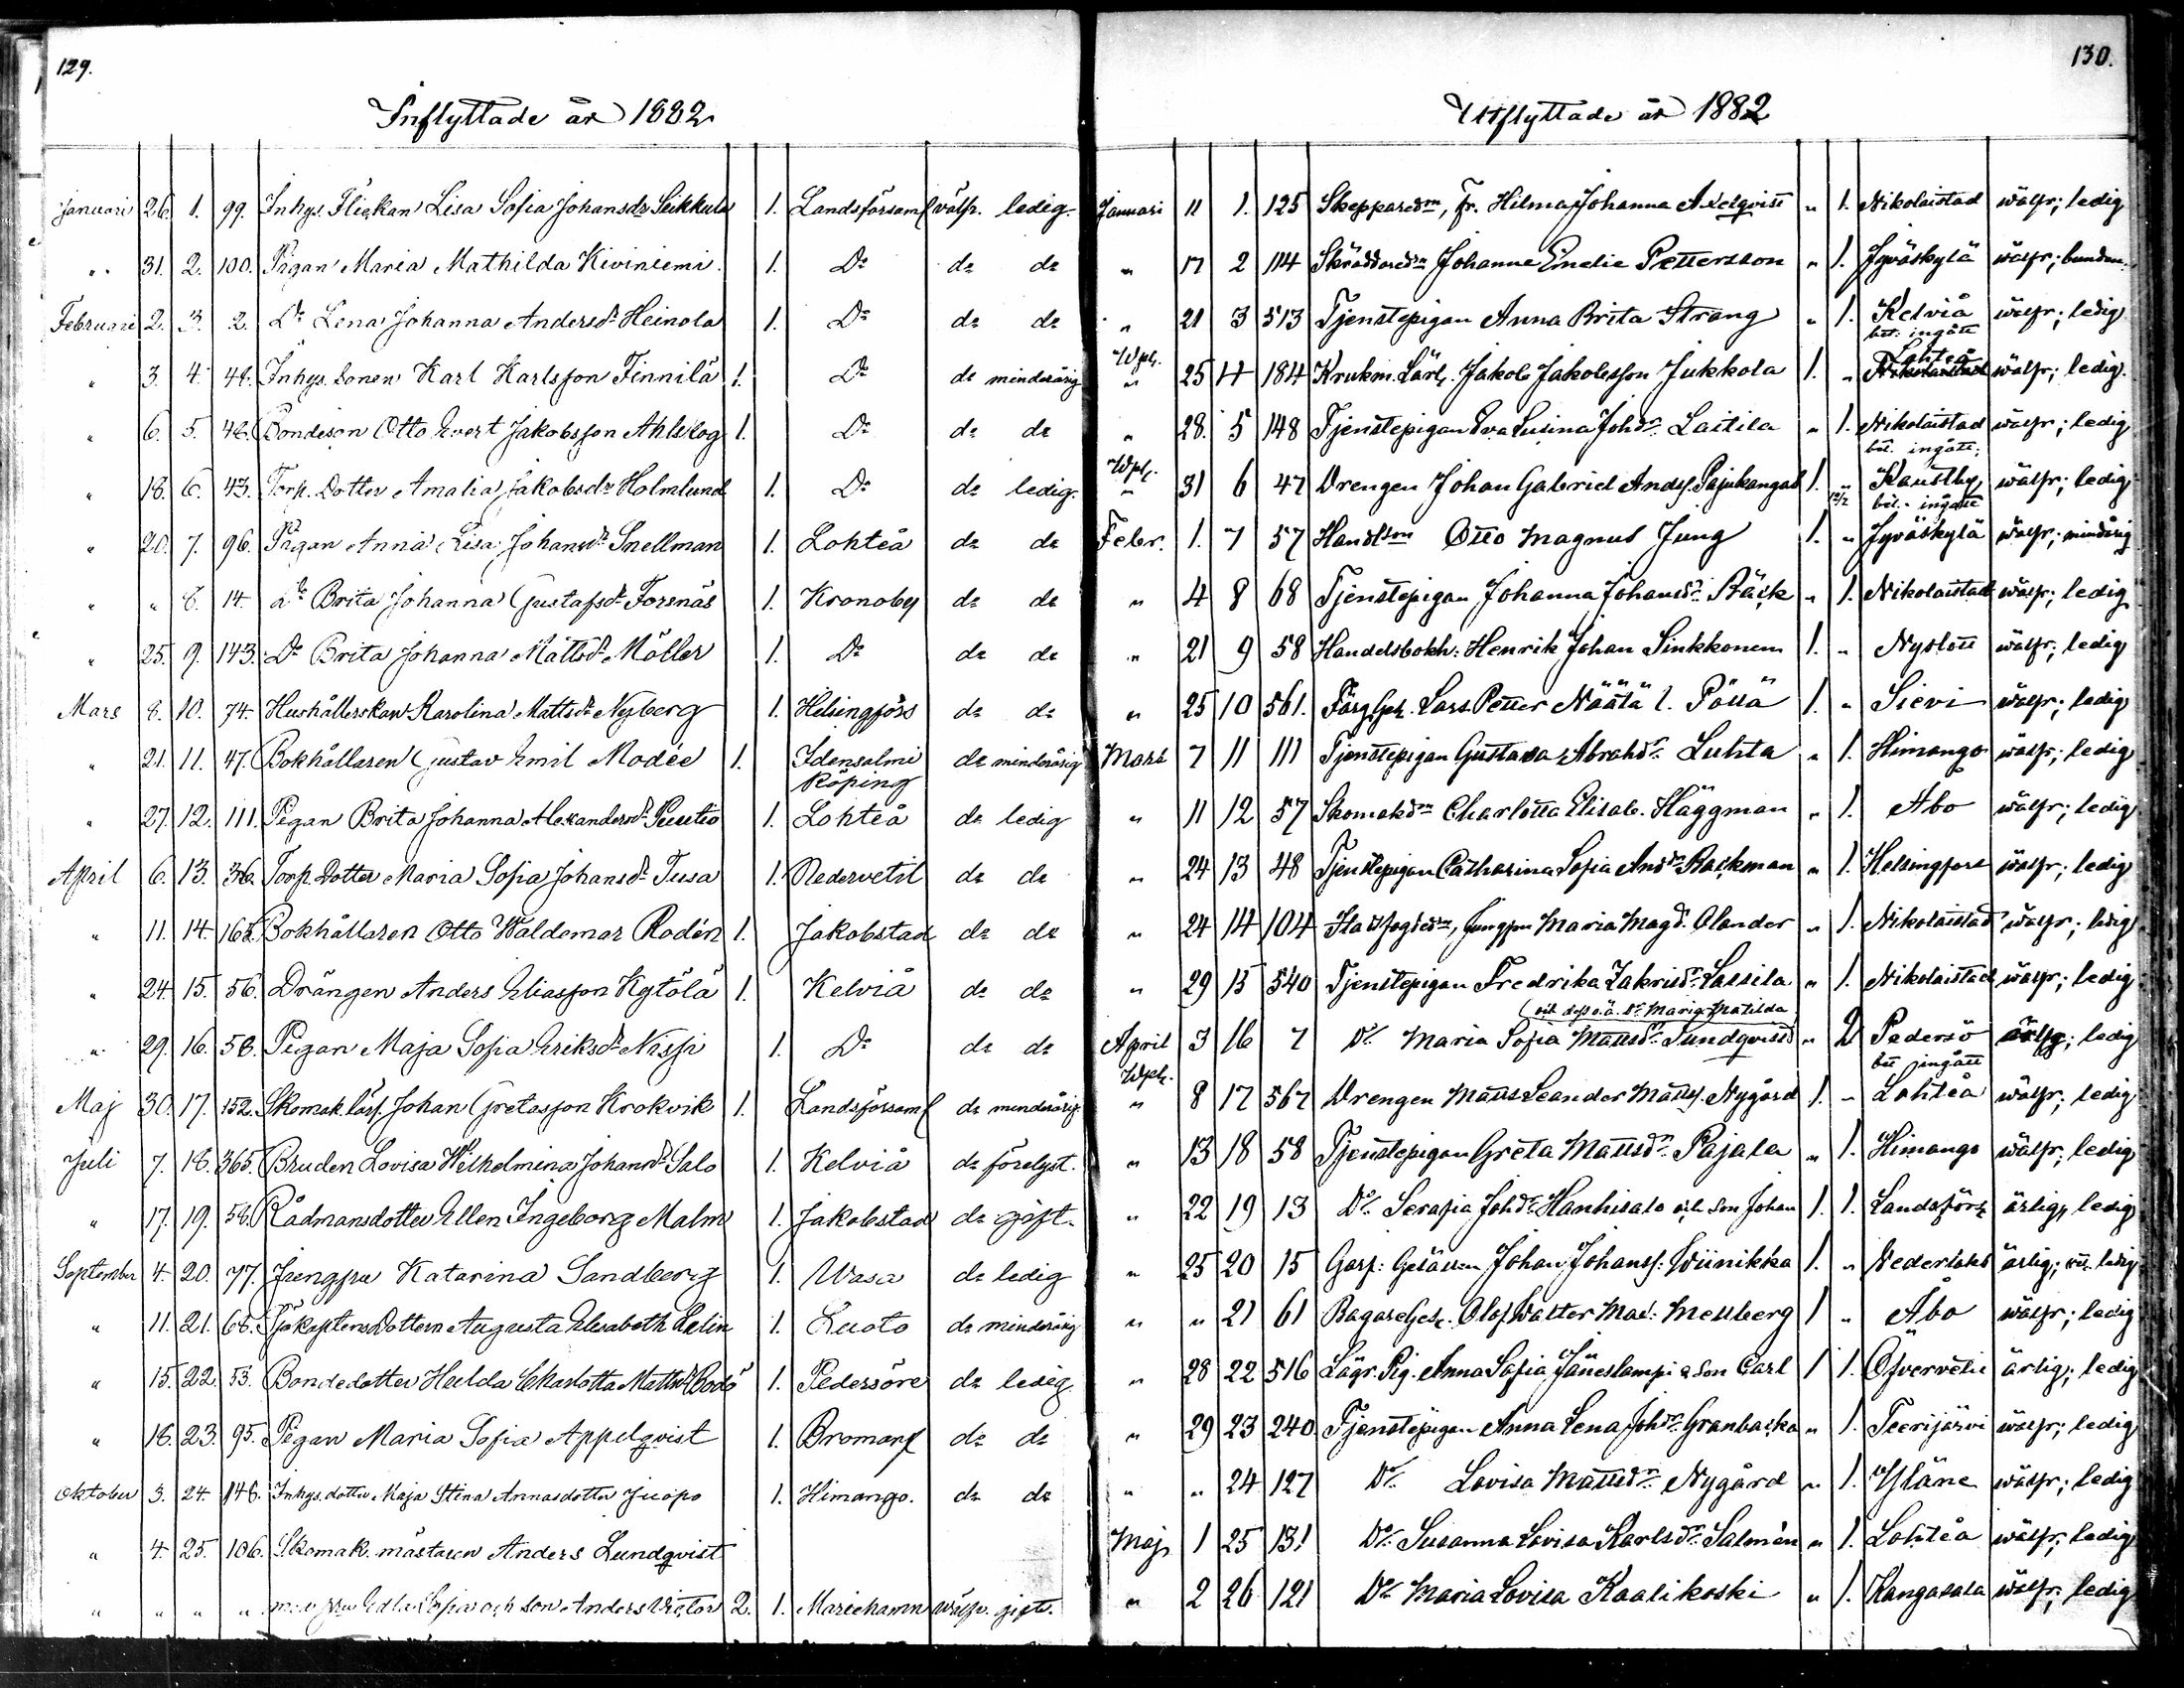 129.
Inflyttade år 1882
Januari 26. 1. 99. Inhys. Flickan Lisa Sofia Johansdr Seikkula 1. Landsförsaml välfr. ledig.
" 31. 2. 100. Pigan Maria Mathilda Kiviniemi. 1. Do do do
Februari 2. 3. 2. Do Lena Johanna Andersdr Heinola 1. Do do do
" 3. 4. 48. Inhys. Sonen Karl Karlsson Finnilä 1. Do do minderårig
" 6. 5. 48. Bondeson Otto Evert Jakobsson Ahlskog 1. Do do do
" 18. 6. 43. Torp. Dotter Amalia Jakobsdr Holmlund 1. Do do ledig.
" 20. 7. 96. Pigan Anna Lisa Johansdr Snellman 1. Lohteå do do
" " 8. 14. Do Brita Johanna Gustafsdr Forsnäs 1. Kronoby do do
" 25. 9. 143. Do Brita Johanna Mattsdr Möller 1. Do do do
Mars 8. 10. 74. Hushållerskan Karolina Mattsdr Nyberg 1. Helsingfors do do
" 21. 11. 47. Bokhållaren Gustav Emil Modée 1. Idensalmi köping do minderårig
" 27. 12. 111. Pigan Brita Johanna Alexandersdr Peutio 1. Lohteå do ledig
April 6. 13. 36. Torp. Dotter Maria Sofia Johansdr Tusa 1. Nedervetil do do
" 11. 14. 168. Bokhållaren Otto Waldemar Rodén 1. Jakobstad do do
" 24. 15. 56. Drängen Anders Eliasson Kytölä 1. Kelviå do do
" 29. 16. 58. Pigan Maja Sofia Eriksdr Nissi 1. Do do do
Maj 30. 17. 152. Skomak. lärl. Johan Gretasson Krokvik 1. Landsförsaml do minderårig
Juli 7. 18. 365. Bruden Lovisa Wilhelmina Johansdr Salo 1. Kelviå do förelyst.
" 17. 19. 58. Rådmansdotter Ellen Ingeborg Malm 1. Jakobstad do gift.
September 4. 20. 77. Jungfru Katarina Sandberg 1. Wasa do ledig
" 11. 21. 68. SjökaptensDottern Augusta Elisabeth Lelin 1. Luoto do minderårig
" 15. 22. 53. Bondedotter Hulda Charlotta Mattsdr Bodö 1. Pedersöre do ledig
" 18. 23. 95. Pigan Maria Sofia Appelqvist 1. Bromarf do do
Oktober 3. 24. 148. Inhys. dotter Maja Stina Annasdotter Juopo 1. Himango. do do
" 4. 25. 106. Skomak. mästaren Anders Lundqvist
" " " " Sofia och son Anders Victor 2. 1. Mariehamn välfr. gift.
130.
Utflyttade år 1882
Januari 11 1. 125 Skepparedn, Fr. Hilma Johanna Axelqvist " 1. Nikolaistad wälfr; ledig
" 17 2 114 Skräddaredn Johanna Emelie Pettersson " 1. Jyväskylä wälfr; bunden.
" 21 3 513 Tjenstepigan Anna Brita Strang " 1. Kelviå wälfr; ledig
bet. ingått
Wpl. " 25 4 184 Krukm. Lärl. Jakob Jakobsson Jukkola 1. " Lohteå wälfr; ledig.
" 28. 5 148 Tjenstepigan Eva Lusina Johdr Laitila " 1. Nikolaistad wälfr; ledig
bet. ingått;
Wpl. " 31 6 47 Drengen Johan Gabriel Andsf. Pajukangas 1. " Kaustby wälfr; ledig
12/2 bet. ingått
Febr. 1. 7 57 Handlson Otto Magnus Jung 1. " Jyväskylä wälfr; minderårig
" 4 8 68 Tjenstepigan Johanna Johansdr Bäck " 1. Nikolaistad wälfr; ledig
" 21 9 58 Handelsbokh. Henrik Johan Sinkkonen 1. " Nyslott wälfr; ledig
" 25 10 561. Färg.Ges. Lars Petter Näätä l. Pöttä 1. " Sievi wälfr; ledig
Mars 7 11 111 Tjenstepigan Gustava Abrahdr Luhta " 1. Himango wälfr; ledig
" 11 12 57 Skomakdn Charlotta Elisab. Häggman " 1. Åbo wälfr; ledig
" 24 13 48 Tjenstepigan Catharina Sofia Anddr Backman " 1. Helsingfors wälfr; ledig
" 24 14 104 Stadsfogdedn, Jungfru Maria Magd. Olander " 1. Nikolaistad wälfr; ledig
" 29 15 540 Tjenstepigan Fredrika Zakrisdr Lassila " 1. Nikolaistad wälfr; ledig
(och dess o.ä. dr Maria Matilda
April 3 16 7 Do Maria Sofia Mattsdr Sundqvist " 2 Pedersö ärlig; ledig
bet ingått
Wpl. " 8 17 567 Drengen Matts Leander Mattsf. Nygård 1. " Lohteå wälfr; ledig
" 13 18 58 Tjenstepigan Greta Mattsdr Pajala " 1. Himango wälfr; ledig
" 22 19 13 Do Serafia Johdr Hanhisalo och Son Johan 1. 1. Landsförs ärlig, ledig
" 25 20 15 Garf. Gesällen Johan Johansf. Wiinikka 1. " Nederlaks ärlig; ledig
" " 21 61 BagareGes. Olof Walter Mellberg 1 " Åbo wälfr; ledig
" 28 22 516 Lägr. Pig. Anna Sofia Jäneslampi & Son Carl 1 1. Öfvervetil ärlig; ledig
" 29 23 240 Tjenstepigan Anna Lena Johdr Granbacka " 1. Teerijärvi wälfr; ledig
" " 24 127 Do Lovisa Mattsdr Nygård " 1. Yläne wälfr; ledig
Maj 1 25 131 Do Susanna Lovisa Karlsdr Salmén " 1. Lohteå wälfr; ledig
" 2 26 121 Do Maria Lovisa Kaalikoski " 1. Kangasala wälfr; ledig